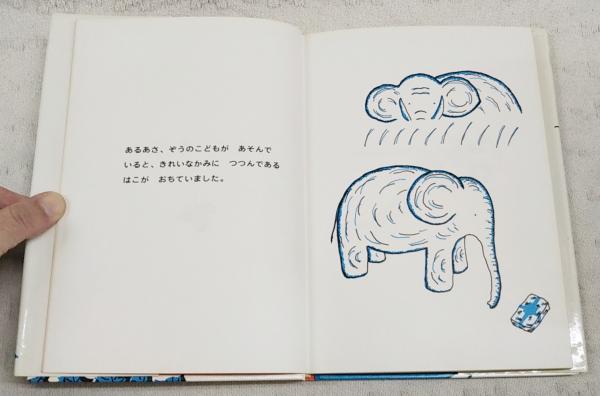 あるあさ、ぞうのこどもが　あそんで
いると、きれいなかみに　つつんである
はこが　おちていました。